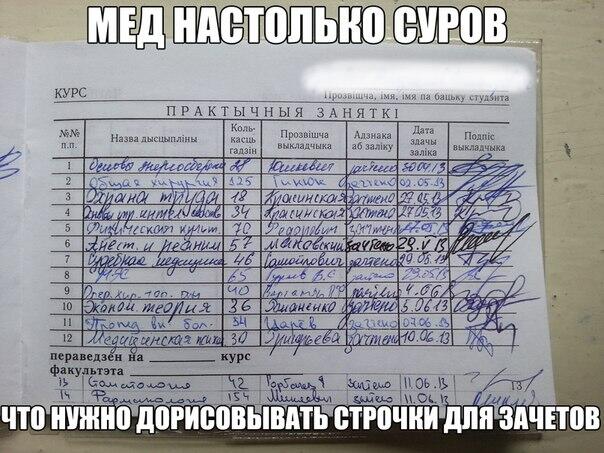 МЕД НАСТОЛЬКО СУРОВ
КУРС
Прозвішча, імя, імя па бацьку студэнта
ПРАКТЫЧНЫЯ ЗАНЯТКІ
№№ п.п. Назва дысцыпліны Коль-касць гадзін Прозвішча выкладчыка Адзнака аб заліку Дата здачы заліка Подпіс выкладчыка
1 Основы 28 Юшкевич зачтено 30.04.13
2 Общая хирургия 125 зачтено 02.05.13
3 Охрана труда 18 Красинская зачтено 27.05.13
4 34 Красинская зачтено 27.05.13
5 70 Федорович зачтено
6 Анест. и реаним 57 зачтено 29.V 13
7 Судебная медицина 46 зачтено 29.05.13
8 65 В.С. зачтено 29.05.13
9 Опер. хир. топ. 40 4.06.13
10 Эконом. теория 36 Романенко зачтено 5.06.13
11 Пропед. вн. бол. 34 Царёв зачтено 07.06.13
12 Медицинская 30 Григорьева зачтено 10.06.13
пераведзен на курс
факультэта
13 Стоматология 42 зачтено 11.06.13
14 Фармакология 154 зачтено 11.06.13
ЧТО НУЖНО ДОРИСОВЫВАТЬ СТРОЧКИ ДЛЯ ЗАЧЕТОВ